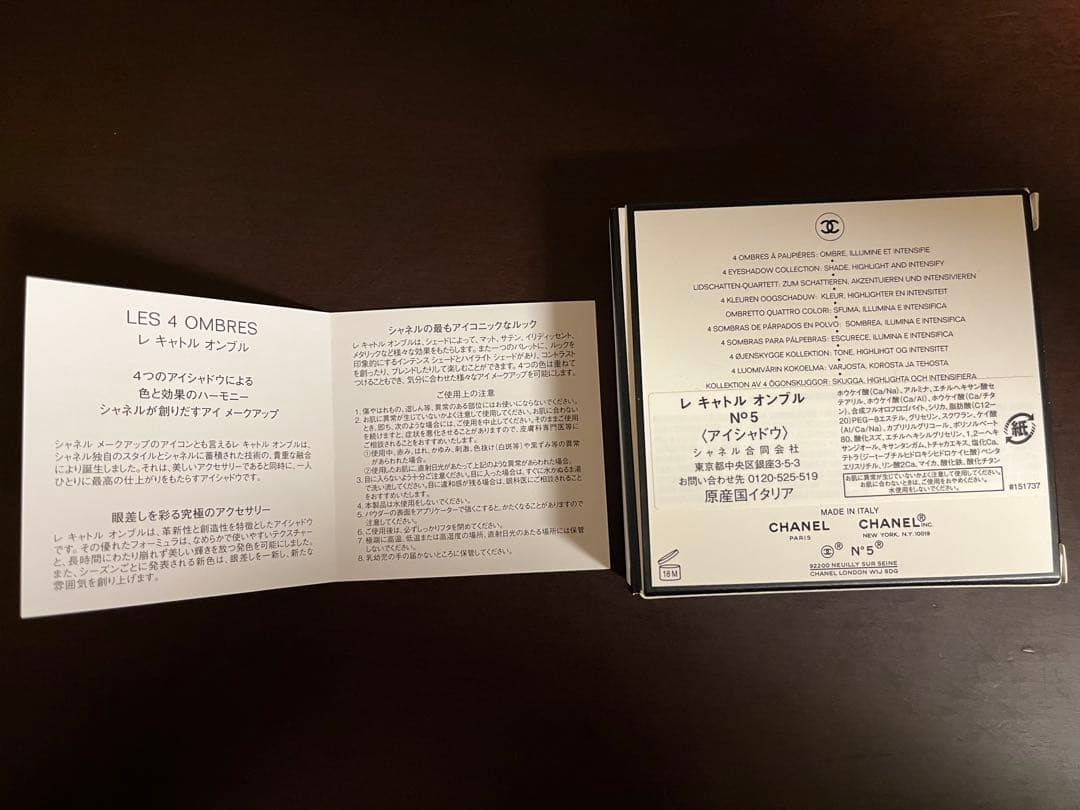 LES 4 OMBRES
レ キャトル オンブル
4つのアイシャドウによる
色と効果のハーモニー
シャネルが創りだすアイ メークアップ
シャネル メークアップのアイコンとも言えるレ キャトル オンブルは、
シャネル独自のスタイルとシャネルに蓄積された技術の、貴重な融合
により誕生しました。それは、美しいアクセサリーであると同時に、一人
ひとりに最高の仕上がりをもたらすアイシャドウです。
眼差しを彩る究極のアクセサリー
レ キャトル オンブルは、革新性と創造性を特徴としたアイシャドウ
です。その優れたフォーミュラは、なめらかで使いやすいテクスチャー
と、長時間にわたり崩れず美しい輝きを放つ発色を可能にしました。
また、シーズンごとに発表される新色は、眼差しを一新し、新たな
雰囲気を創り上げます。
シャネルの最もアイコニックなルック
レ キャトル オンブルは、シェードによって、マット、サテン、イリディッセント、
メタリックなど様々な効果をもたらします。また一つのパレットに、ルックを
印象的にするインテンス シェードとハイライト シェードがあり、コントラスト
を創ったり、ブレンドしたりして楽しむことができます。4つの色は重ねて
つけることもでき、気分に合わせた様々なアイ メークアップを可能にします。
ご使用上の注意
1. 傷やはれもの、湿しん等、異常のある部位にはお使いにならないでください。
2. お肌に異常が生じていないかよく注意して使用してください。お肌に合わない
とき、即ち、次のような場合には、ご使用を中止してください。そのままご使用
を続けますと、症状を悪化させることがありますので、皮膚科専門医等に
ご相談されることをおすすめいたします。
①使用中、赤み、はれ、かゆみ、刺激、色抜け(白斑等)や黒ずみ等の異常
があらわれた場合。
②使用したお肌に、直射日光があたって上記のような異常があらわれた場合。
3. 目に入らないよう十分ご注意ください。目に入った場合は、すぐに水かぬるま湯
で洗い流してください。目に違和感が残る場合は、眼科医にご相談されること
をおすすめいたします。
4. 本製品は水使用をしないでください。
5. パウダーの表面をアプリケーターで強くこすると、かたくなることがありますので
注意してください。
6. ご使用後は、必ずしっかりフタを閉めてください。
7. 極端に高温、低温または高湿度の場所、直射日光のあたる場所には保管
しないでください。
8. 乳幼児の手の届かないところに保管してください。
4 OMBRES À PAUPIÈRES: OMBRE, ILLUMINE ET INTENSIFIE
4 EYESHADOW COLLECTION: SHADE, HIGHLIGHT AND INTENSIFY
LIDSCHATTEN-QUARTETT: ZUM SCHATTIEREN, AKZENTUIEREN UND INTENSIVIEREN
4 KLEUREN OOGSCHADUW: KLEUR, HIGHLIGHTER EN INTENSITEIT
OMBRETTO QUATTRO COLORI: SFUMA, ILLUMINA E INTENSIFICA
4 SOMBRAS DE PÁRPADOS EN POLVO: SOMBREA, ILUMINA E INTENSIFICA
4 SOMBRAS PARA PÁLPEBRAS: ESCURECE, ILUMINA E INTENSIFICA
4 ØJENSKYGGE KOLLEKTION: TONE, HIGHLIHGT OG INTENSITET
4 LUOMIVÄRIN KOKOELMA: VARJOSTA, KOROSTA JA TEHOSTA
KOLLEKTION AV 4 ÖGONSKUGGOR: SKUGGA, HIGHLIGHTA OCH INTENSIFIERA
レ キャトル オンブル
Nº5
〈アイシャドウ〉
シャネル合同会社
東京都中央区銀座3-5-3
お問い合わせ先 0120-525-519
原産国イタリア
ホウケイ酸(Ca/Na)、アルミナ、エチルヘキサン酸セ
テアリル、ホウケイ酸(Ca/Al)、ホウケイ酸(Ca/チタ
ン)、合成フルオロフロゴパイト、シリカ、脂肪酸(C12-
20)PEG-8エステル、グリセリン、スクワラン、ケイ酸
(Al/Ca/Na)、カプリリルグリコール、ポリソルベート
80、酸化スズ、エチルヘキシルグリセリン、1,2-ヘキ
サンジオール、キサンタンガム、トチャカエキス、塩化Ca、
テトラ(ジ-t-ブチルヒドロキシヒドロケイヒ酸)ペンタ
エリスリチル、リン酸2Ca、マイカ、酸化鉄、酸化チタン
お肌に異常が生じていないかよく注意して使用してください。
お肌に合わないときは、ご使用をおやめください。
水使用をしないでください。
紙
#151737
MADE IN ITALY
CHANEL CHANEL® INC.
PARIS NEW YORK, N.Y. 10019
® Nº5®
92200 NEUILLY SUR SEINE
CHANEL LONDON W1J 8DG
18M